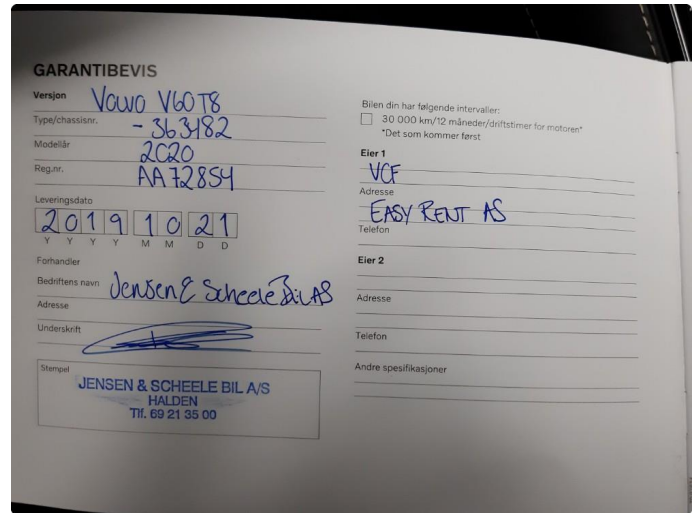 GARANTIBEVIS
Versjon Volvo V60 T8
Type/chassisnr. - 363482
Modellår 2020
Reg.nr. AA72854
Leveringsdato
2 0 1 9 1 0 2 1
Y Y Y Y M M D D
Forhandler
Bedriftens navn Jensen & Scheele Bil AS
Adresse
Underskrift
Stempel
JENSEN & SCHEELE BIL A/S
HALDEN
Tlf. 69 21 35 00
Bilen din har følgende intervaller:
30 000 km/12 måneder/driftstimer for motoren*
*Det som kommer først
Eier 1
VCF
Adresse
EASY RENT AS
Telefon
Eier 2
Adresse
Telefon
Andre spesifikasjoner